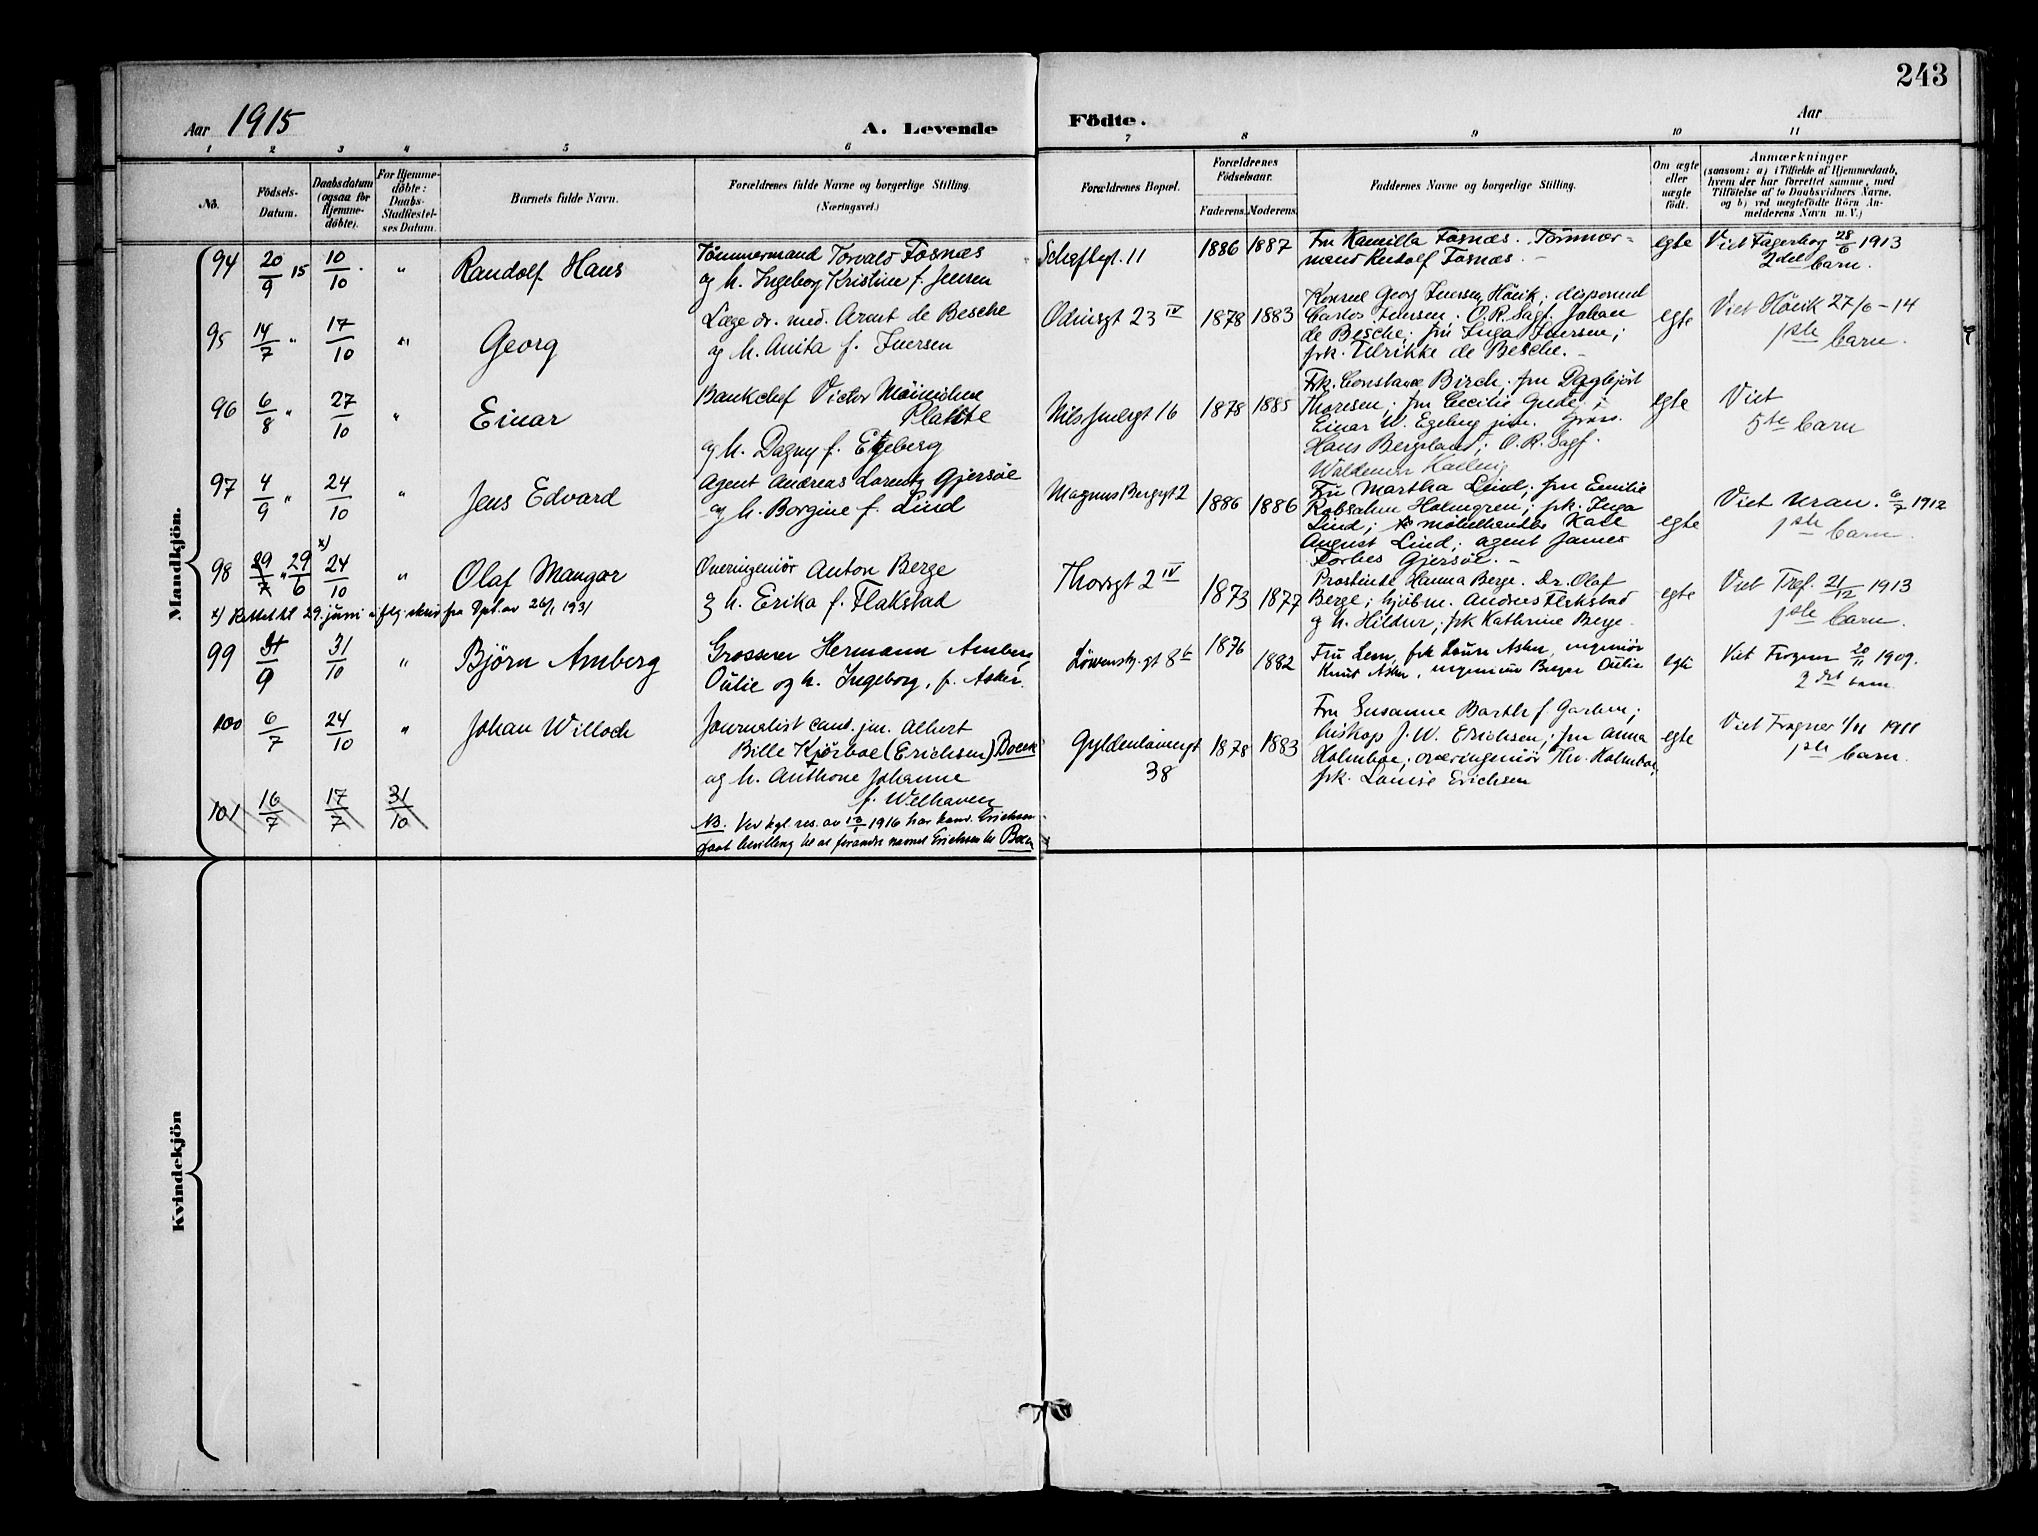 243
Aar 1915
A. Levende
Födte.
Aar
1 2 3 4 5 6 7 8 9 10 11
No.
Födsels-
Datum.
Daabsdatum
(ogsaa for
Hjemme-
døbte).
For Hjemme-
døbte:
Daabs-
Stadfæstel-
ses Datum.
Barnets fulde Navn.
Forældrenes fulde Navne og borgerlige Stilling.
(Næringsvei.)
Forældrenes Bopæl.
Forældrenes
Födselsaar.
Faderens.
Moderens.
Faddernes Navne og borgerlige Stilling.
Om ægte
eller
uægte
födt.
Anmærkninger
(saasom: a) i Tilfælde af Hjemmedaab,
hvem der har forrettet samme, med
Tilföielse af to Daabsvidners Navne,
og b) ved uægtefödte Börn An-
melderens Navn m. V.)
Mandkjön.
94 20/9 15 10/10 " Randolf Hans
Tømmermand Torvald Fosnæs
og h. Ingeborg Kristine f. Jensen
Schæftsgt. 11 1886 1887
Fru Kamilla Fosnæs. Tømmer-
mand Rudolf Fosnæs. -
egte
Viet Fagerborg 28/6 1913
2det barn.
95 14/7 " 17/10 " Georg
Læge dr. med. Arent de Besche
og h. Anita f. Iversen
Odinsgt 23 IV 1878 1883
Konsul Georg Iversen, Hövik; disponent
Carlos Iversen. O.R.Sagf. Johan
de Besche; fru Inga Iversen;
frk. Ulrikke de Besche. -
egte
Viet Hövik 27/6 - 14
1ste barn.
96 6/8 " 27/10 " Einar
Bankchef Victor
Plahte
og h. Dagny f. Egeberg
Nils Juelsgt 16 1878 1885
Frk. Constance Birch; fru Dagbjört
Thoresen; fru Cecilie Gude;
Einar W. Egeberg jun.
Hans Bergsland; O.R. Sagf.
Waldemar
egte
Viet
5te barn
97 4/9 " 24/10 " Jens Edvard
Agent Andreas Lorentz Gjersøe
og h. Borgine f. Lind
Magnus Bergsgt 2 1886 1886
Fru Martha Lind; fru Emilie
Robsahm Holmgren; frk. Inga
Lind; møbelhandler Karl
August Lind; agent James
Forbes Gjersøe. -
egte
Viet Uran. 6/7 1912
1ste barn.
98 29/7 " 29/6 x) 24/10 " Olaf Mangor
Overingeniør Anton Berge
og h. Erika f. Flakstad
Thorsgt 2 IV 1873 1877
Prostinde Hanna Berge. Dr. Olaf
Berge; kjöbm. Andres Flakstad
og h. Hildur; frk Kathrine Berge.
egte
Viet Tref. 21/12 1913
1ste barn.
x) Rettet til 29. juni iflg. skriv fra Dpt. av 26/1 1931
99 31/9 31/10 " Björn Amberg
Grosserer Hermann Amberg
Oulie og h. Ingeborg, f. Asker.
Löwensk. gt 8b 1876 1882
Fru Lern, frk Laura Asker, ingeniør
Knut Asker, ingeniør Birger Oulie
egte
Viet Frogner 20/11 1909.
2det barn
100 6/7 24/10 " Johan Willoch
Journalist cand. jur. Albert
Bille Kiørboe (Erichsen) Boeck
og h. Anthone Johanne
f. Welhaven
Gyldenløvesgt
38
1878 1883
Fru Susanne Barth f Garben;
biskop J. W. Erichsen; fru Anna
Holmboe; overingeniør Thv. Holmboe;
frk. Louise Erichsen
egte
Viet Frogner 1/11 1911
1ste barn.
101 16/7 17/7 31/10
NB. Ved kgl. res. av 13/1 1916 har cand. Erichsen
faat bevilling til at forandre navnet Erichsen til Boeck
Kvindekjön